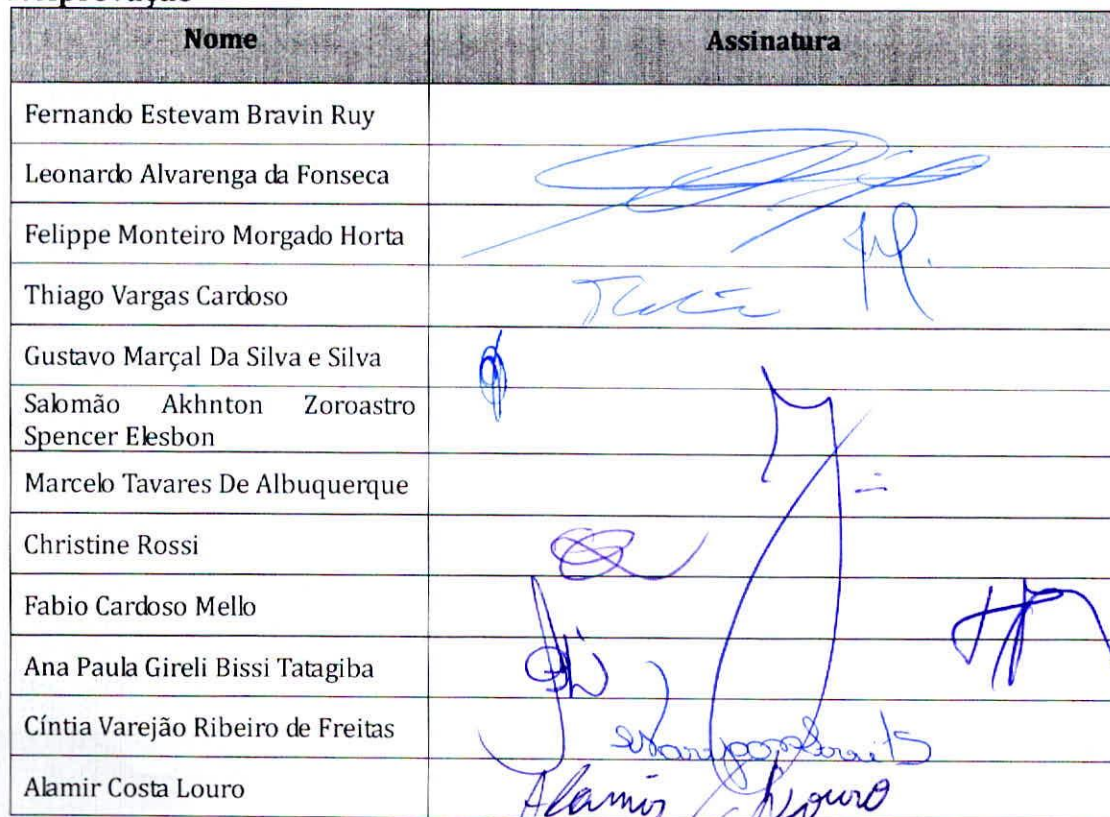 Nome Assinatura
Fernando Estevam Bravin Ruy
Leonardo Alvarenga da Fonseca
Felippe Monteiro Morgado Horta
Thiago Vargas Cardoso
Gustavo Marçal Da Silva e Silva
Salomão Akhnton Zoroastro
Spencer Elesbon
Marcelo Tavares De Albuquerque
Christine Rossi
Fabio Cardoso Mello
Ana Paula Gireli Bissi Tatagiba
Cíntia Varejão Ribeiro de Freitas
Alamir Costa Louro Alamir Louro